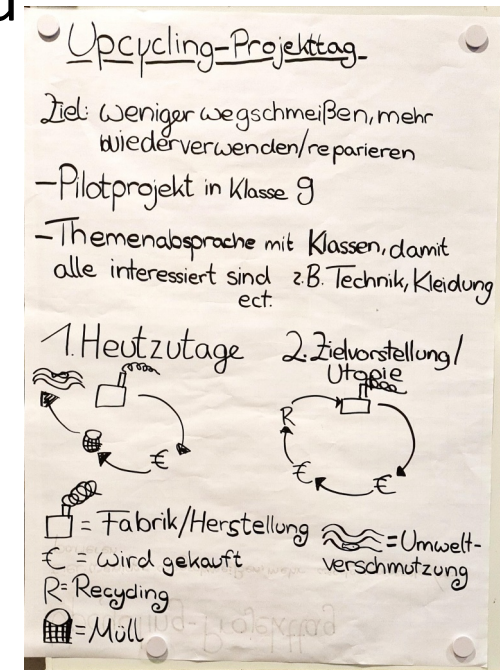 Upcycling-Projekttag
Ziel: weniger wegschmeißen, mehr
wiederverwenden/reparieren
-Pilotprojekt in Klasse 9
-Themenabsprache mit Klassen, damit
alle interessiert sind z.B. Technik, Kleidung
ect.
1. Heutzutage
2. Zielvorstellung/
Utopie
€
R
€
€
= Fabrik/Herstellung
€ = wird gekauft
R = Recycling
= Müll
= Umwelt-
verschmutzung